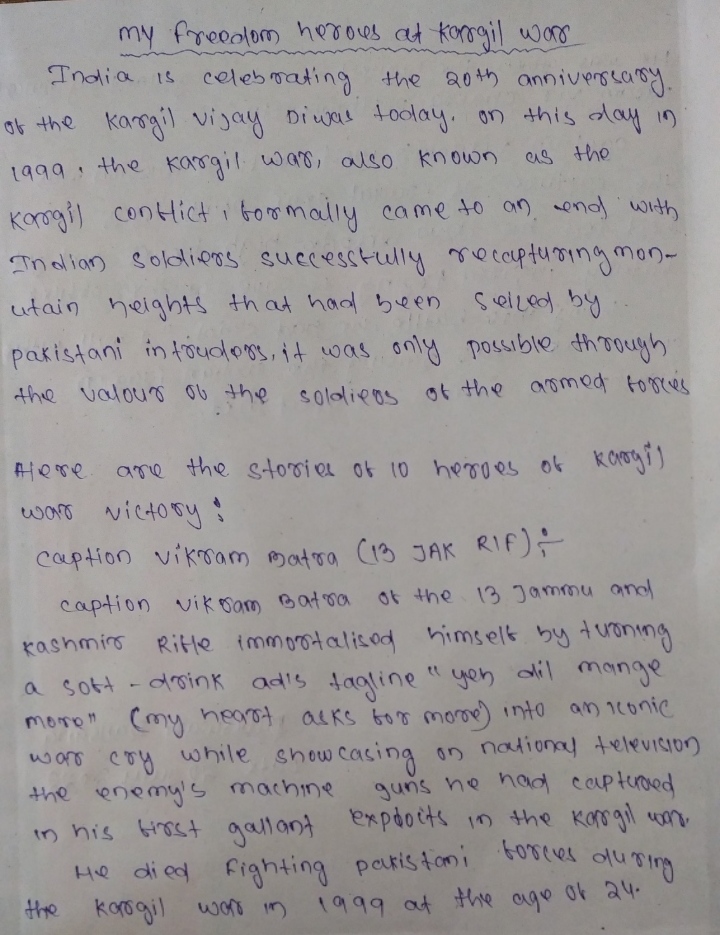 my freedom heroes at kargil war
India is celebrating the 20th anniversary
of the kargil vijay Diwas today. on this day in
1999, the kargil war, also known as the
kargil conflict, formally came to an end with
Indian soldiers successfully recapturing mon-
utain heights that had been seized by
pakistani intruders, it was only possible through
the valour of the soldiers of the armed forces
Here are the stories of 10 heroes of kargil
war victory :
caption vikram Batra (13 JAK RIF) :-
caption vikram Batra of the 13 Jammu and
kashmir Rifle immortalised himself by turning
a soft-drink ad's tagline "yeh dil mange
more" (my heart asks for more) into an iconic
war cry while showcasing on national television
the enemy's machine guns he had captured
in his first gallant exploits in the kargil war.
He died fighting pakistani forces during
the kargil war in 1999 at the age of 24.